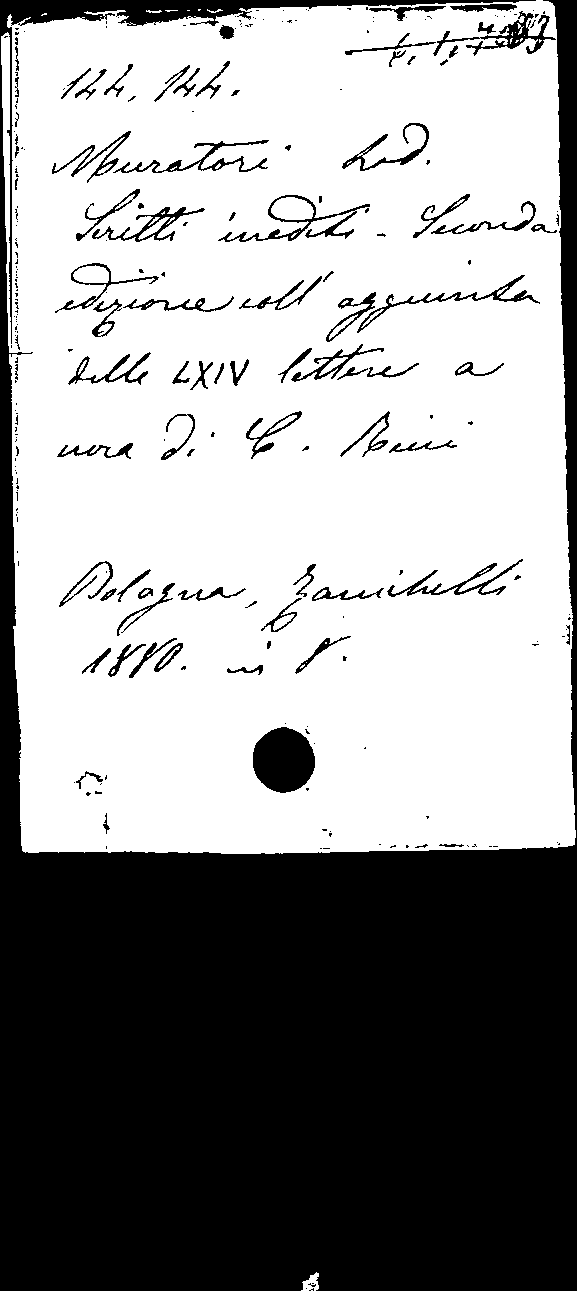 144. 144.
Muratori Lod.
Scritti inediti - Seconda
edizione coll' aggiunta
delle LXIV lettere a
di C.
Bologna, Zanichelli
1880. in 8.